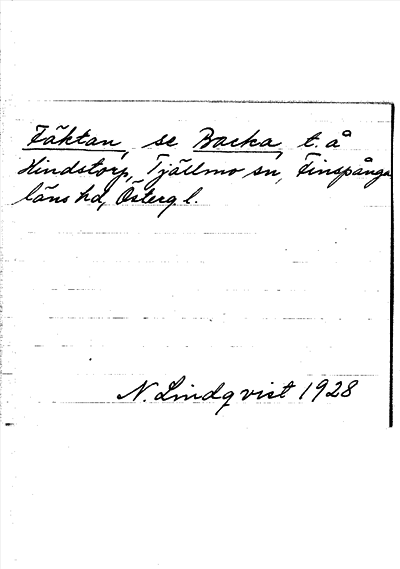 Fäktan, se Backa, t. å
Hindstorp, Tjällmo sn, Finspånga
läns hd, Östergl.
N. Lindqvist 1928